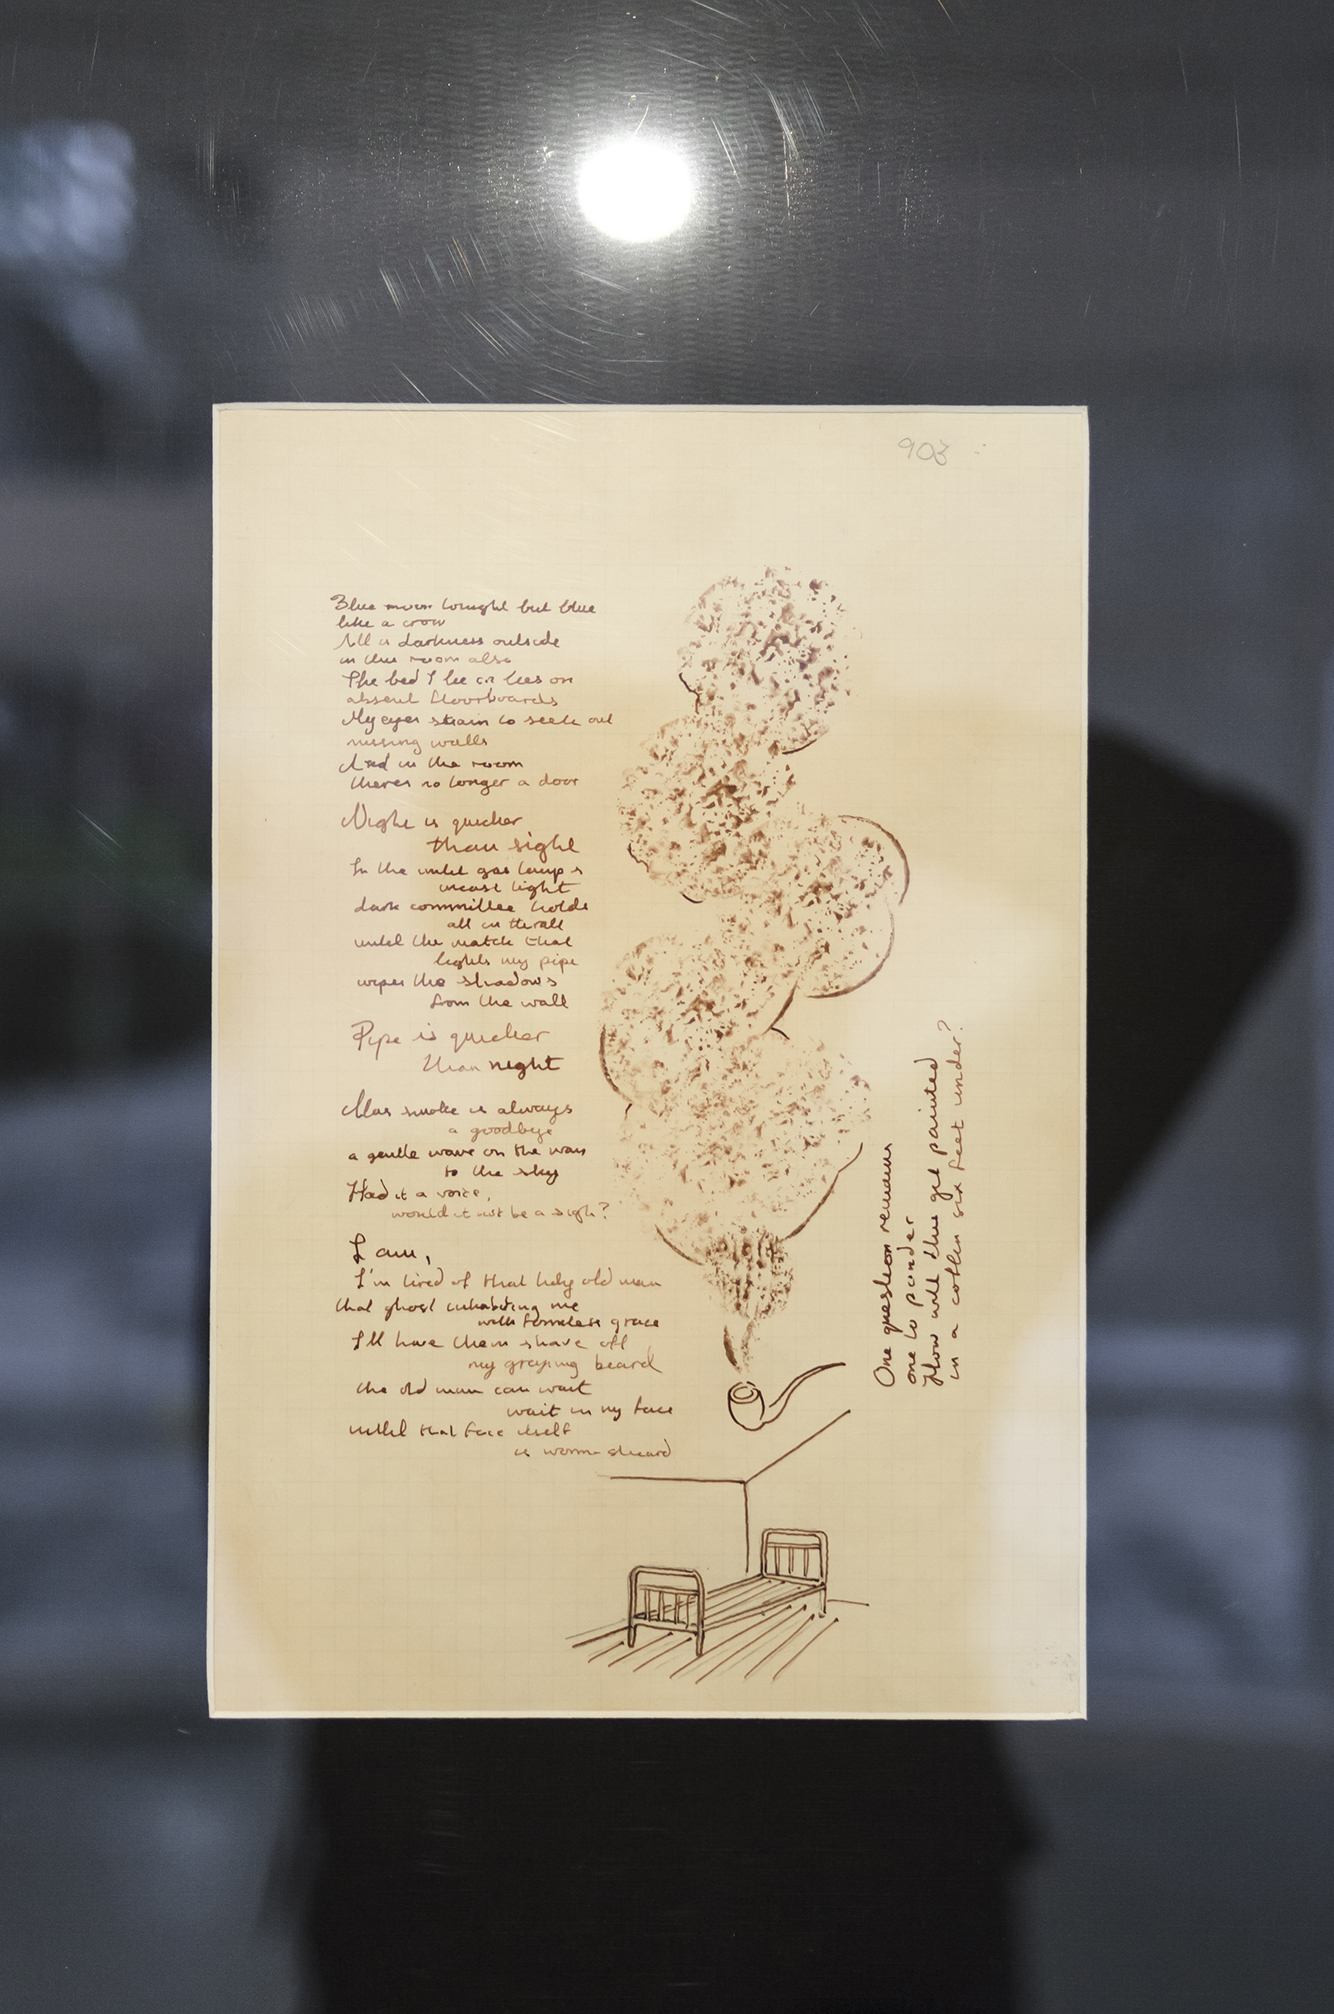 903
Blue moon tonight but blue
like a crow
All is darkness outside
in the room also
The bed I lie on lies on
absent floorboards
My eyes strain to seek out
missing walls
And in the room
theres no longer a door
Night is quicker
than sight
In the unlit gas lamps
incast light
dark committee holds
all in thrall
until the match that
lights my pipe
wipes the shadows
from the wall
Pipe is quicker
than night
Alas smoke is always
a goodbye
a gentle wave on the way
to the sky
Had it a voice,
would it not be a sigh?
I am,
I'm tired of that holy old man
that ghost inhabiting me
with formless grace
I'll have them shave off
my graying beard
the old man can wait
wait in my face
until that face itself
is worm-sheard
One question remains
one to ponder
How will this get painted
in a coffin six feet under?